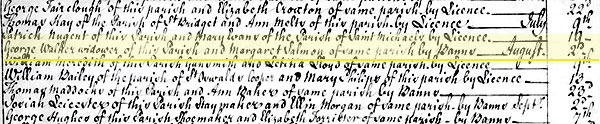 George Fairclough of this parish and Elizabeth Croxton of same parish by Licence 22d
Thomas Hay of the Parish of St Bridget and Ann Melty of this parish by Licence July 9th
Patrick Nugent of this Parish and Mary Evans of the Parish of Saint Michaels by Licence 19
George Walker widower of this Parish and Margaret Salmon of same parish by Banns August 2d
William Meredith of this Parish and Letitia Lloyd of same parish by Licence
William Bailey of the parish of St Oswald Cooper and Mary of this parish by Licence 13
Thomas Maddocks of this Parish and Ann Baker of same parish by Banns 23
Josiah Leicester of this Parish Haymaker and Ellin Morgan of same parish by Banns Septr 2d
George Hughes of this Parish Shoemaker and Elizabeth of same parish by Banns 7th